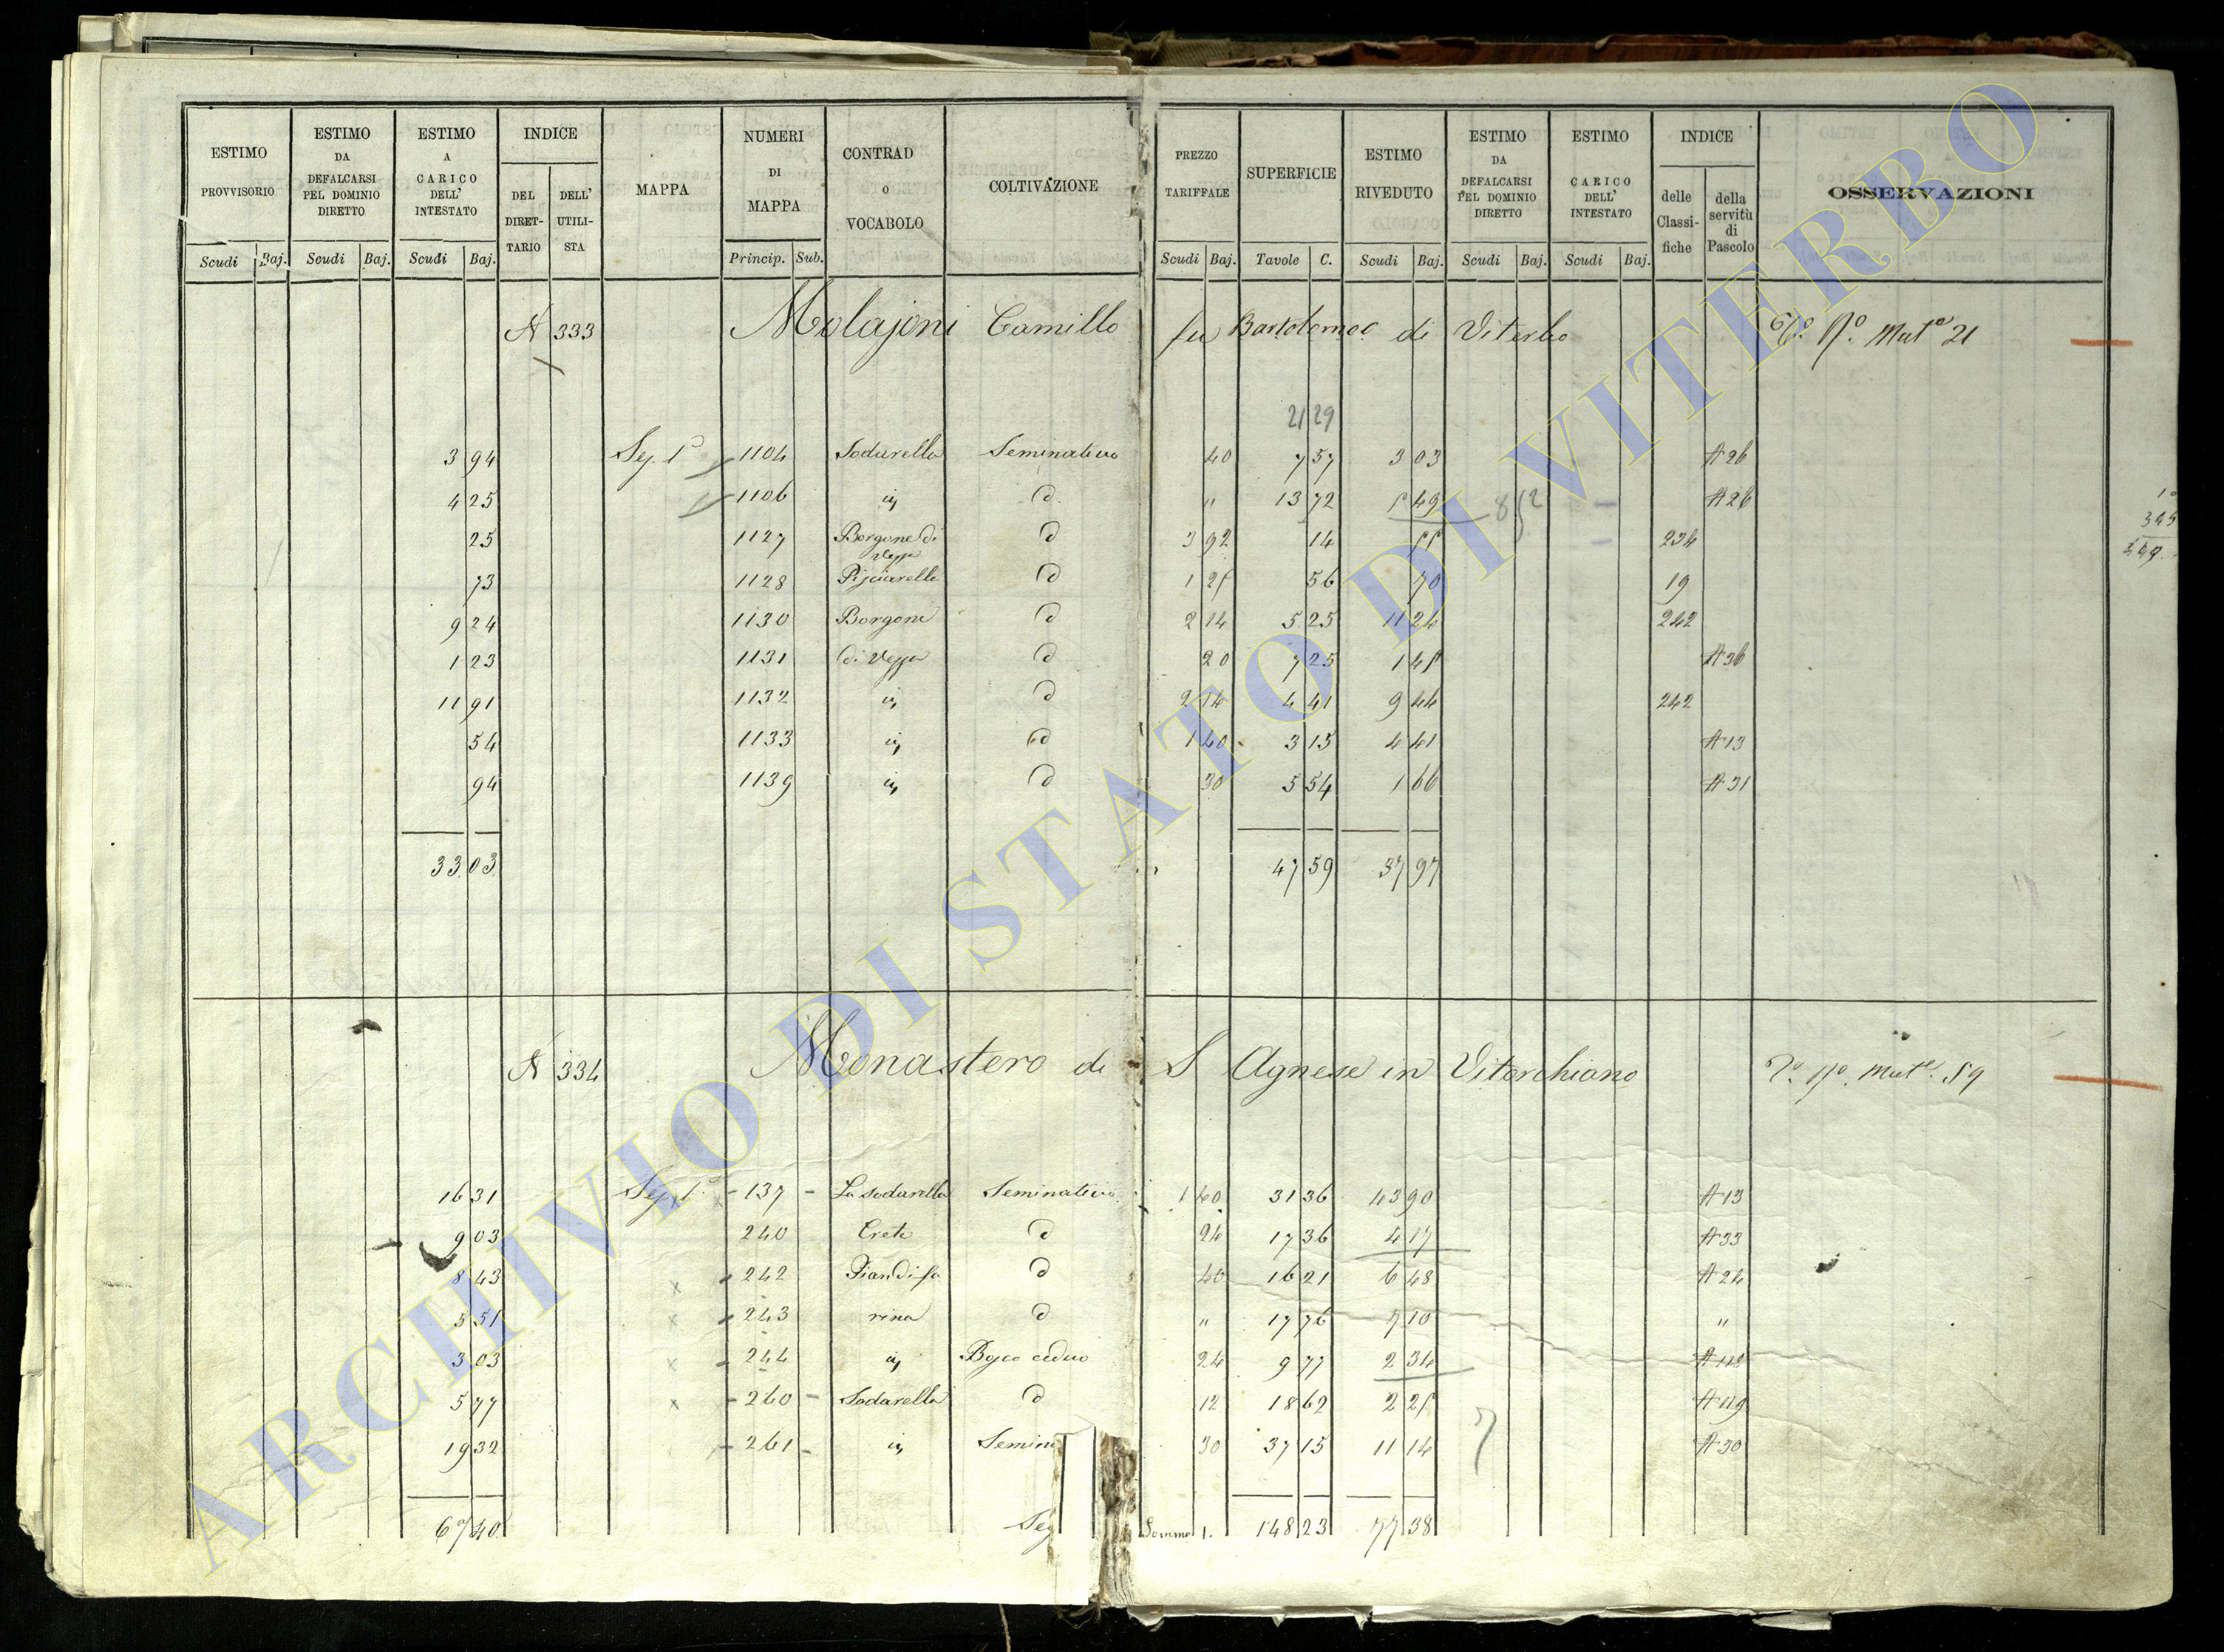 ESTIMO PROVVISORIO | ESTIMO DA DEFALCARSI PEL DOMINIO DIRETTO | ESTIMO A CARICO DELL' INTESTATO | INDICE DEL DIRETTARIO | DELL' UTILISTA | MAPPA | NUMERI DI MAPPA | CONTRAD O VOCABOLO | COLTIVAZIONE | PREZZO TARIFFALE | SUPERFICIE | ESTIMO RIVEDUTO | ESTIMO DA DEFALCARSI PEL DOMINIO DIRETTO | ESTIMO CARICO DELL' INTESTATO | INDICE delle Classifiche | della servitù di Pascolo | OSSERVAZIONI
Scudi Baj. Scudi Baj. Scudi Baj. Princip. Sub. Scudi Baj. Tavole C. Scudi Baj. Scudi Baj. Scudi Baj.
N 333 Molajoni Camillo fu Bartolomeo di Viterbo Mut.e 21
21 29
3 94 Sez. 1a 1104 Sodarella Seminativo 40 7 57 3 03 A 26
4 25 1106 id d " 13 72 5 49 8 52 A 26
25 1127 Borgone di Vezza d 3 92 14 55 234
73 1128 Pisciarello d 1 25 56 70 19
9 24 1130 Borgone d 2 14 5 25 11 24 242
1 23 1131 di Vezza d 20 7 25 1 45 A 36
11 91 1132 id d 2 14 4 41 9 44 242
54 1133 id d 1 40 3 15 4 41 A 13
94 1139 id d 30 5 54 1 66 A 31
33 03 47 59 37 97
N 334 Monastero di S Agnese in Vitorchiano Mut.e 59
16 31 Sez. 1a 137 La Sodarella Seminativo 1 40 31 36 43 90 A 13
9 03 240 Crete d 24 17 36 4 17 A 33
8 43 x 242 Piandifa d 40 16 21 6 48 A 24
5 51 x 243 rina d " 17 76 7 10 "
3 03 x 244 id Bosco ceduo 24 9 77 2 34 A 118
5 77 x 260 Sodarella d 12 18 62 2 25 A 119
19 32 261 id Semin 30 37 15 11 14 A 30
67 40 Seg Somma 1. 148 23 77 38
ARCHIVIO DI STATO DI VITERBO